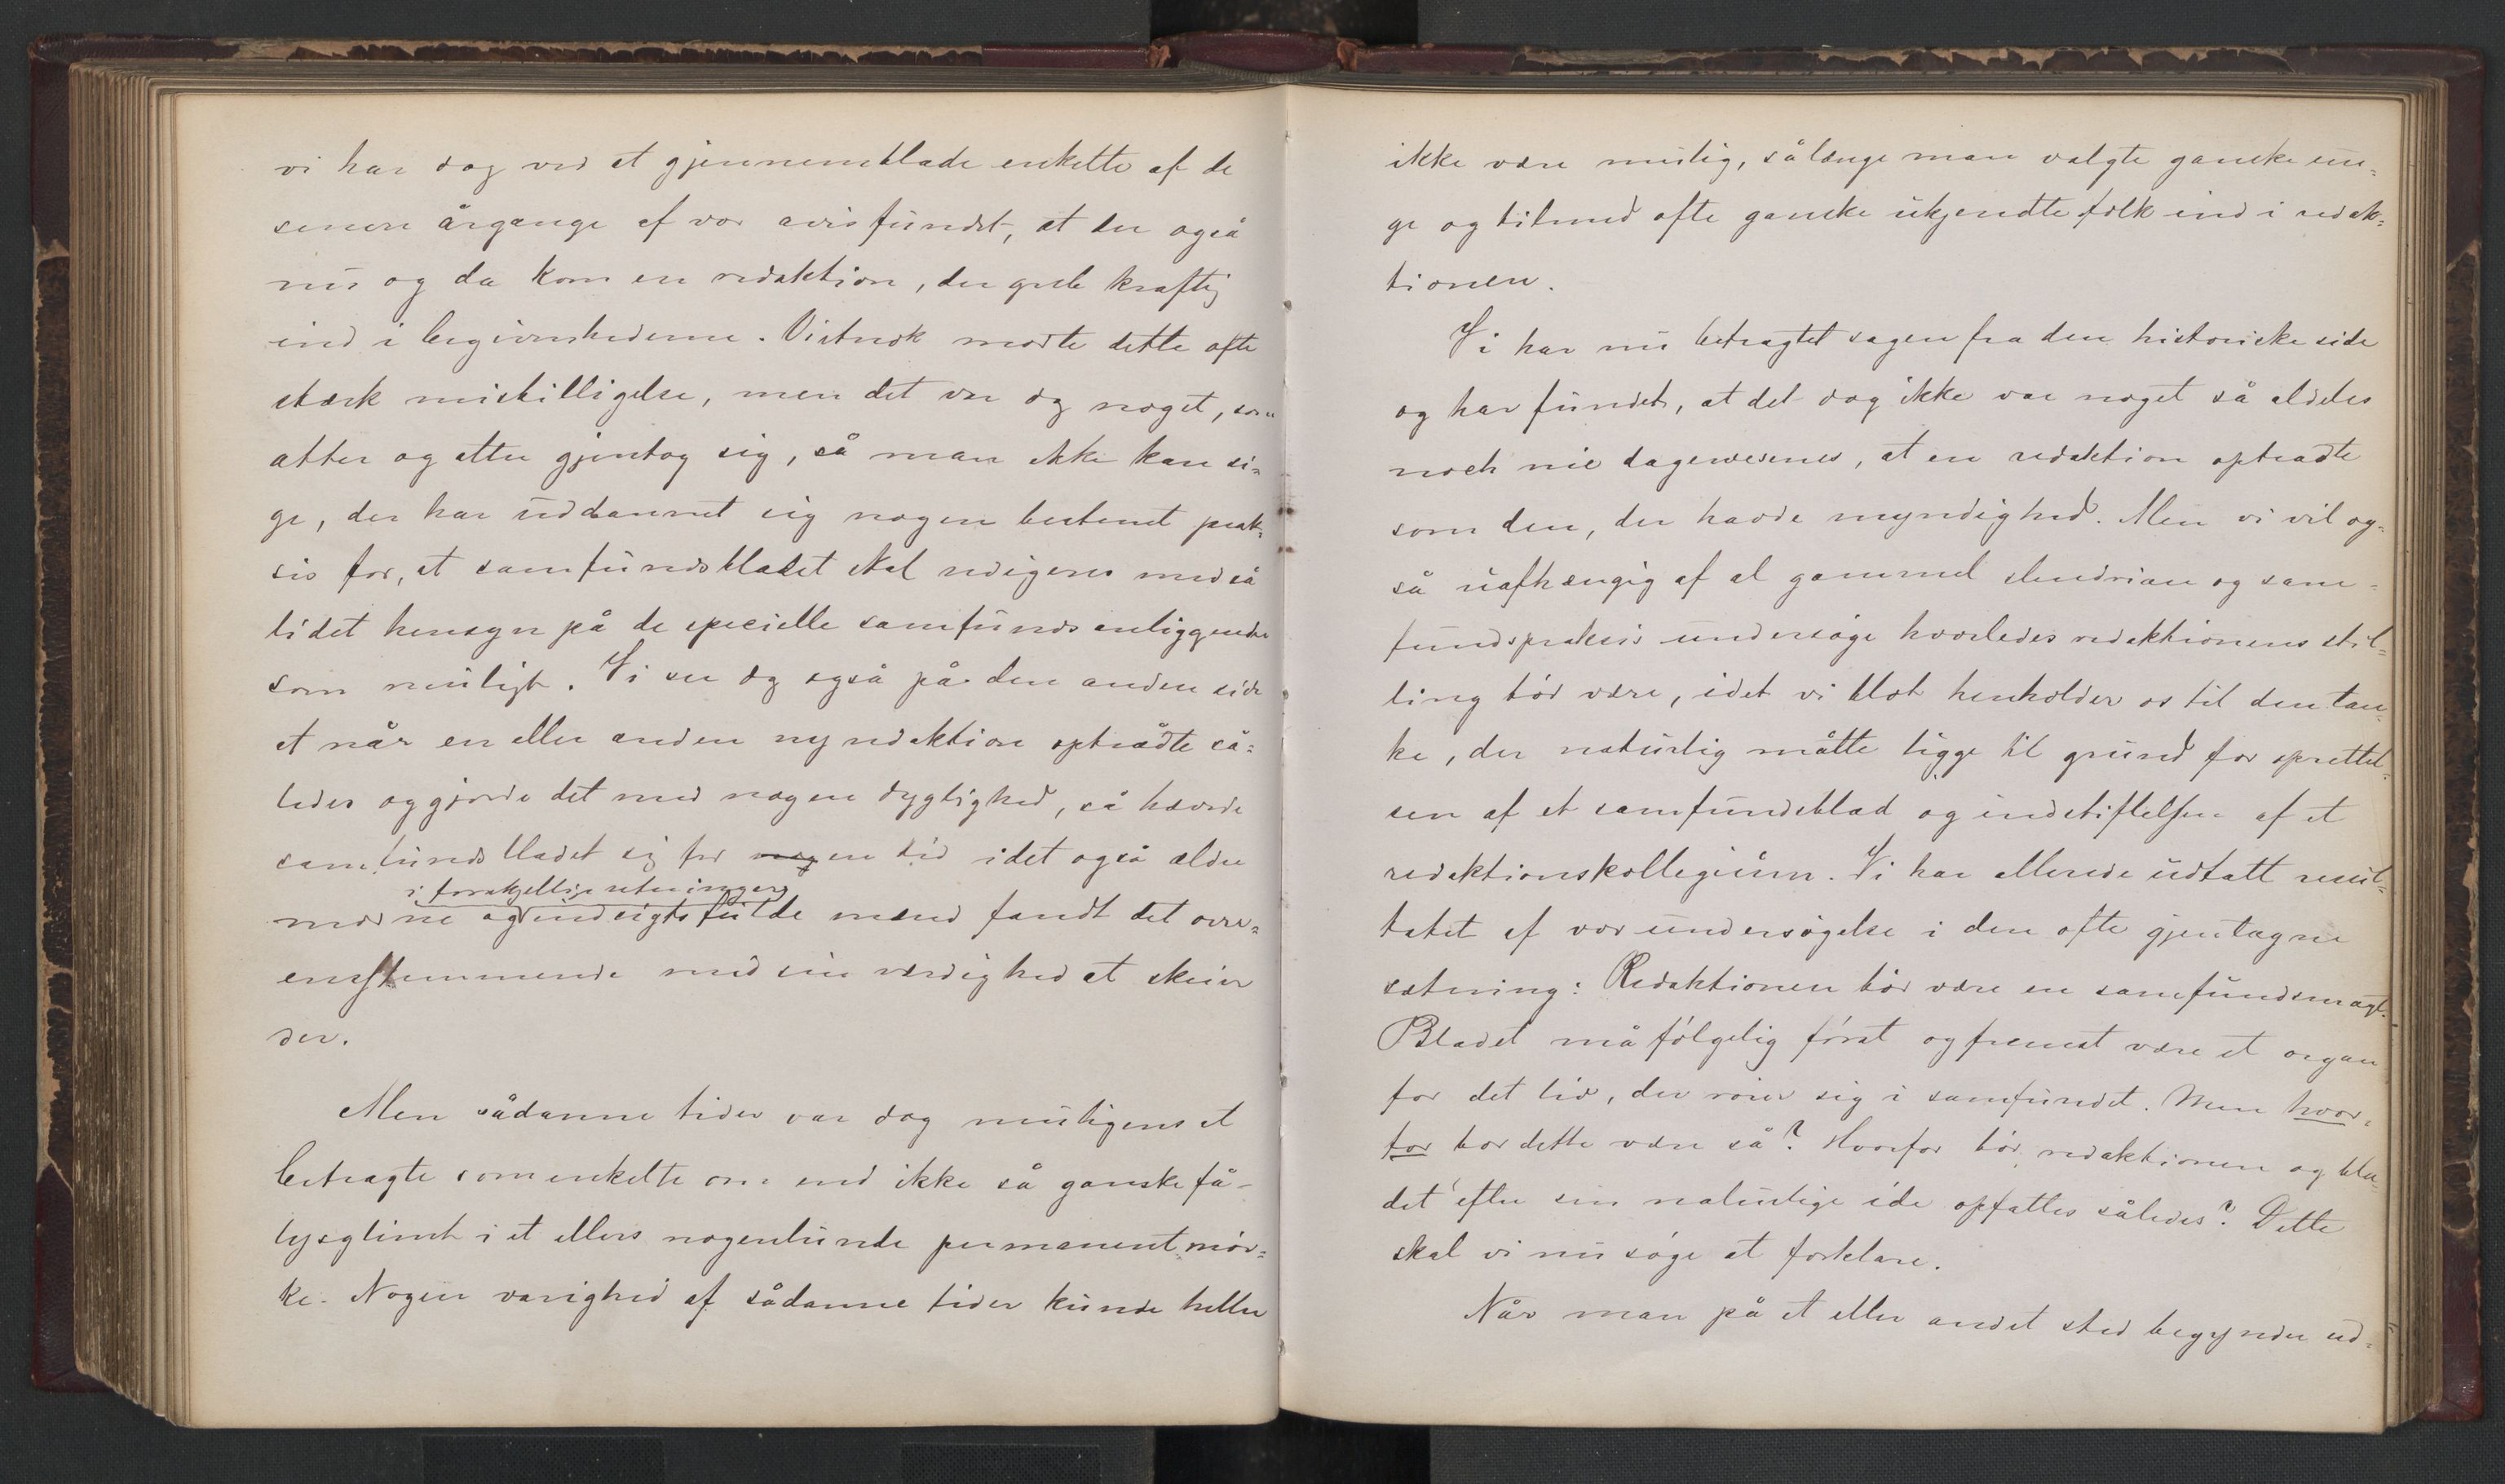 vi har dog ved at gjennemblade enkelte af de
senere årgange af vor avis fundet, at der også
nu og da kom en redaktion, der greb kraftig
ind i begivenhederne. Vistnok mødte dette ofte
stærk misbilligelse, men det var dog noget, som
atter og atter gjentog sig, så man ikke kan si=
ge, der har uddannet sig nogen bestemt prak=
sis for, at samfundsbladet skal redigeres med så
lidet hensyn på de specielle samfundsanliggender
som muligt. Vi ser dog også på den anden side
at når en eller anden ny redaktion optrådte så=
ledes og gjorde det med nogen dygtighed, så hævde
samfundsbladet sig for nogen tid idet også ældre
i forskjellige retninger
modne og indsigtsfulde mænd fandt det over=
ensstemmende med sin værdighed at skrive
der.
Men sådanne tider var dog muligens at
betragte som enkelte om end ikke så ganske få
lysglimt i et ellers nogenlunde permanent mør=
ke. Nogen varighed af sådanne tider kunde heller
ikke være mulig, sålænge man valgte ganske un=
ge og tilmed ofte ganske ukjendte folk ind i redak=
tionen.
Vi har nu betragtet sagen fra den historiske side
og har fundet, at det dog ikke var noget så aldeles
noch nie dagewesenes, at en redaktion optrådte
som den, der havde myndighed. Men vi vil og=
så uafhængig af al gammel slendrian og sam=
fundspraksis undersøge hvorledes redaktionens stil=
ling bør være, idet vi blot henholder os til den tan=
ke, der naturlig måtte ligge til grund for oprettel=
sen af et samfundsblad og indstiftelsen af et
redaktionskollegium. Vi har allerede udtalt resul=
tatet af vor undersøgelse i den ofte gjentagne
sætning: Redaktionen bør være en samfundsmagt.
Bladet må følgelig først og fremst være et organ
for det liv, der rører sig i samfundet. Men hvor=
for bør dette være så? Hvorfor bør redaktionen og bla=
det efter sin naturlige ide opfattes således? Dette
skal vi nu søge at forklare.
Når man på et eller andet sted begynder ud=